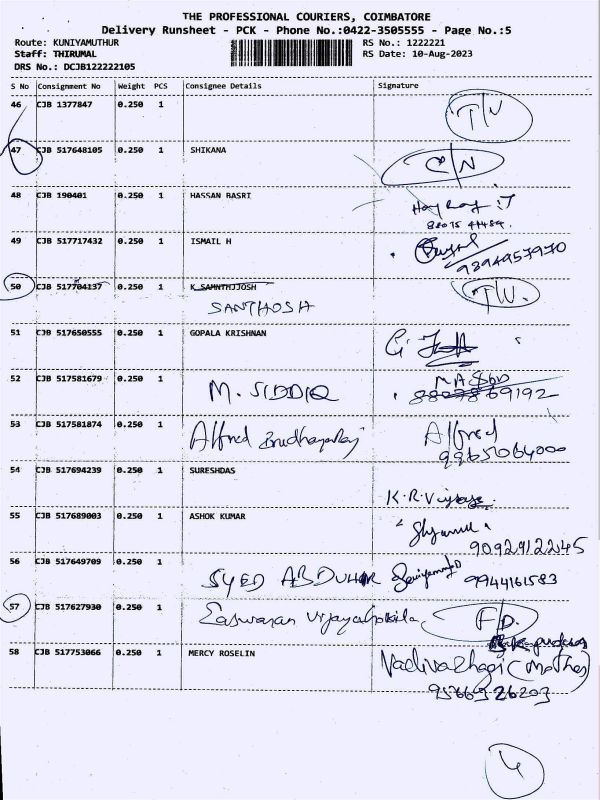 THE PROFESSIONAL COURIERS, COIMBATORE
Delivery Runsheet - PCK - Phone No.:0422-3505555 - Page No.:5
Route: KUNIYAMUTHUR RS No.: 1222221
Staff: THIRUMAL RS Date: 10-Aug-2023
DRS No.: DCJB122222105
S No Consignment No Weight PCS Consignee Details Signature
46 CJB 1377847 0.250 1 T/W
47 CJB 517648105 0.250 1 SHIKANA C/N
48 CJB 190401 0.250 1 HASSAN BASRI
49 CJB 517717432 0.250 1 ISMAIL H 9894957970
50 CJB 517704137 0.250 1 K SAMNTHJJOSH T/W.
SANTHOSH
51 CJB 517650555 0.250 1 GOPALA KRISHNAN
52 CJB 517581679 0.250 1 M. SIDDIQ
53 CJB 517581874 0.250 1 Alfred Alfred
9965064000
54 CJB 517694239 0.250 1 SURESHDAS K.R.
55 CJB 517689003 0.250 1 ASHOK KUMAR
9092912245
56 CJB 517649709 0.250 1 SYED 9944161583
57 CJB 517627930 0.250 1 Easwaran F/D.
58 CJB 517753066 0.250 1 MERCY ROSELIN (Mother)
4